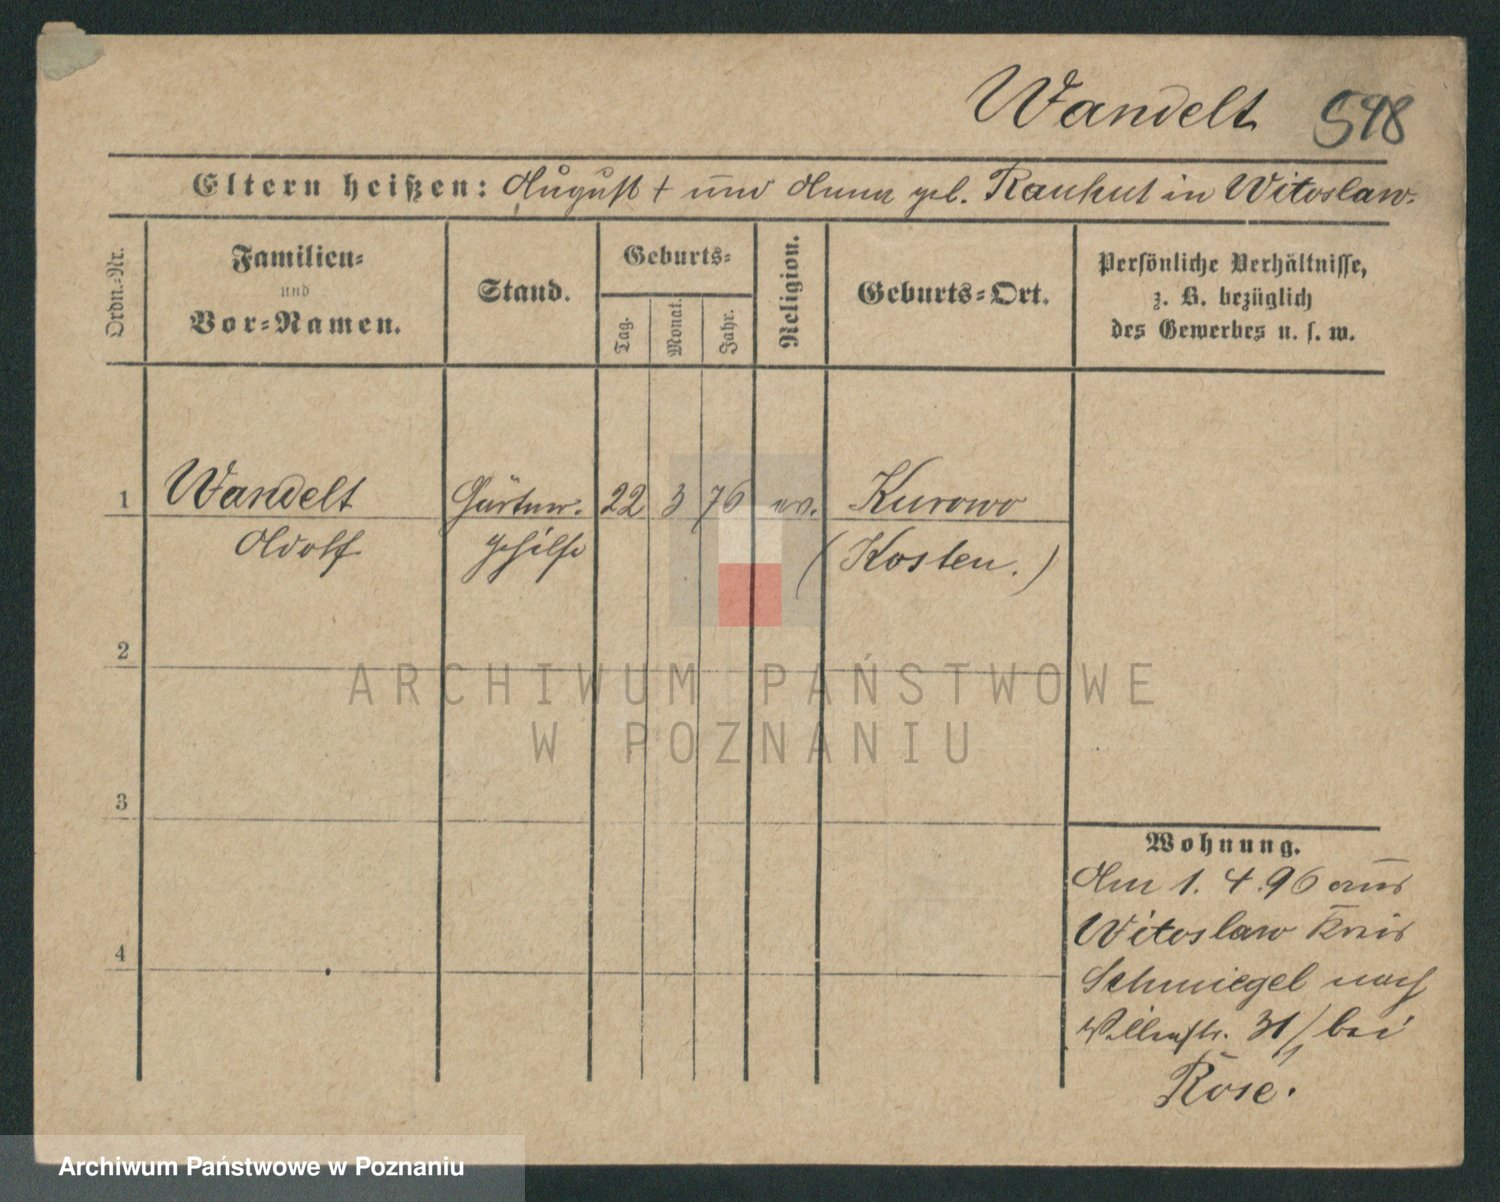 Wandelt 598
Eltern heißen: August † und Anna geb. Raukut in Witoslaw.
Ordn.-Nr.
Familien-
und
Vor-Namen.
Stand.
Geburts-
Tag.
Monat.
Jahr.
Religion.
Geburts-Ort.
Persönliche Verhältnisse,
z. B. bezüglich
des Gewerbes u. s. w.
1 Wandelt Gärtner- 22 3 76 ev. Kurowo
Adolf gehilfe (Kosten.)
2
3
4
Wohnung.
Am 1. 4. 96 aus
Witoslaw Kreis
Schmiegel nach
31/ bei
Rose.
ARCHIWUM PAŃSTWOWE
W POZNANIU
Archiwum Państwowe w Poznaniu